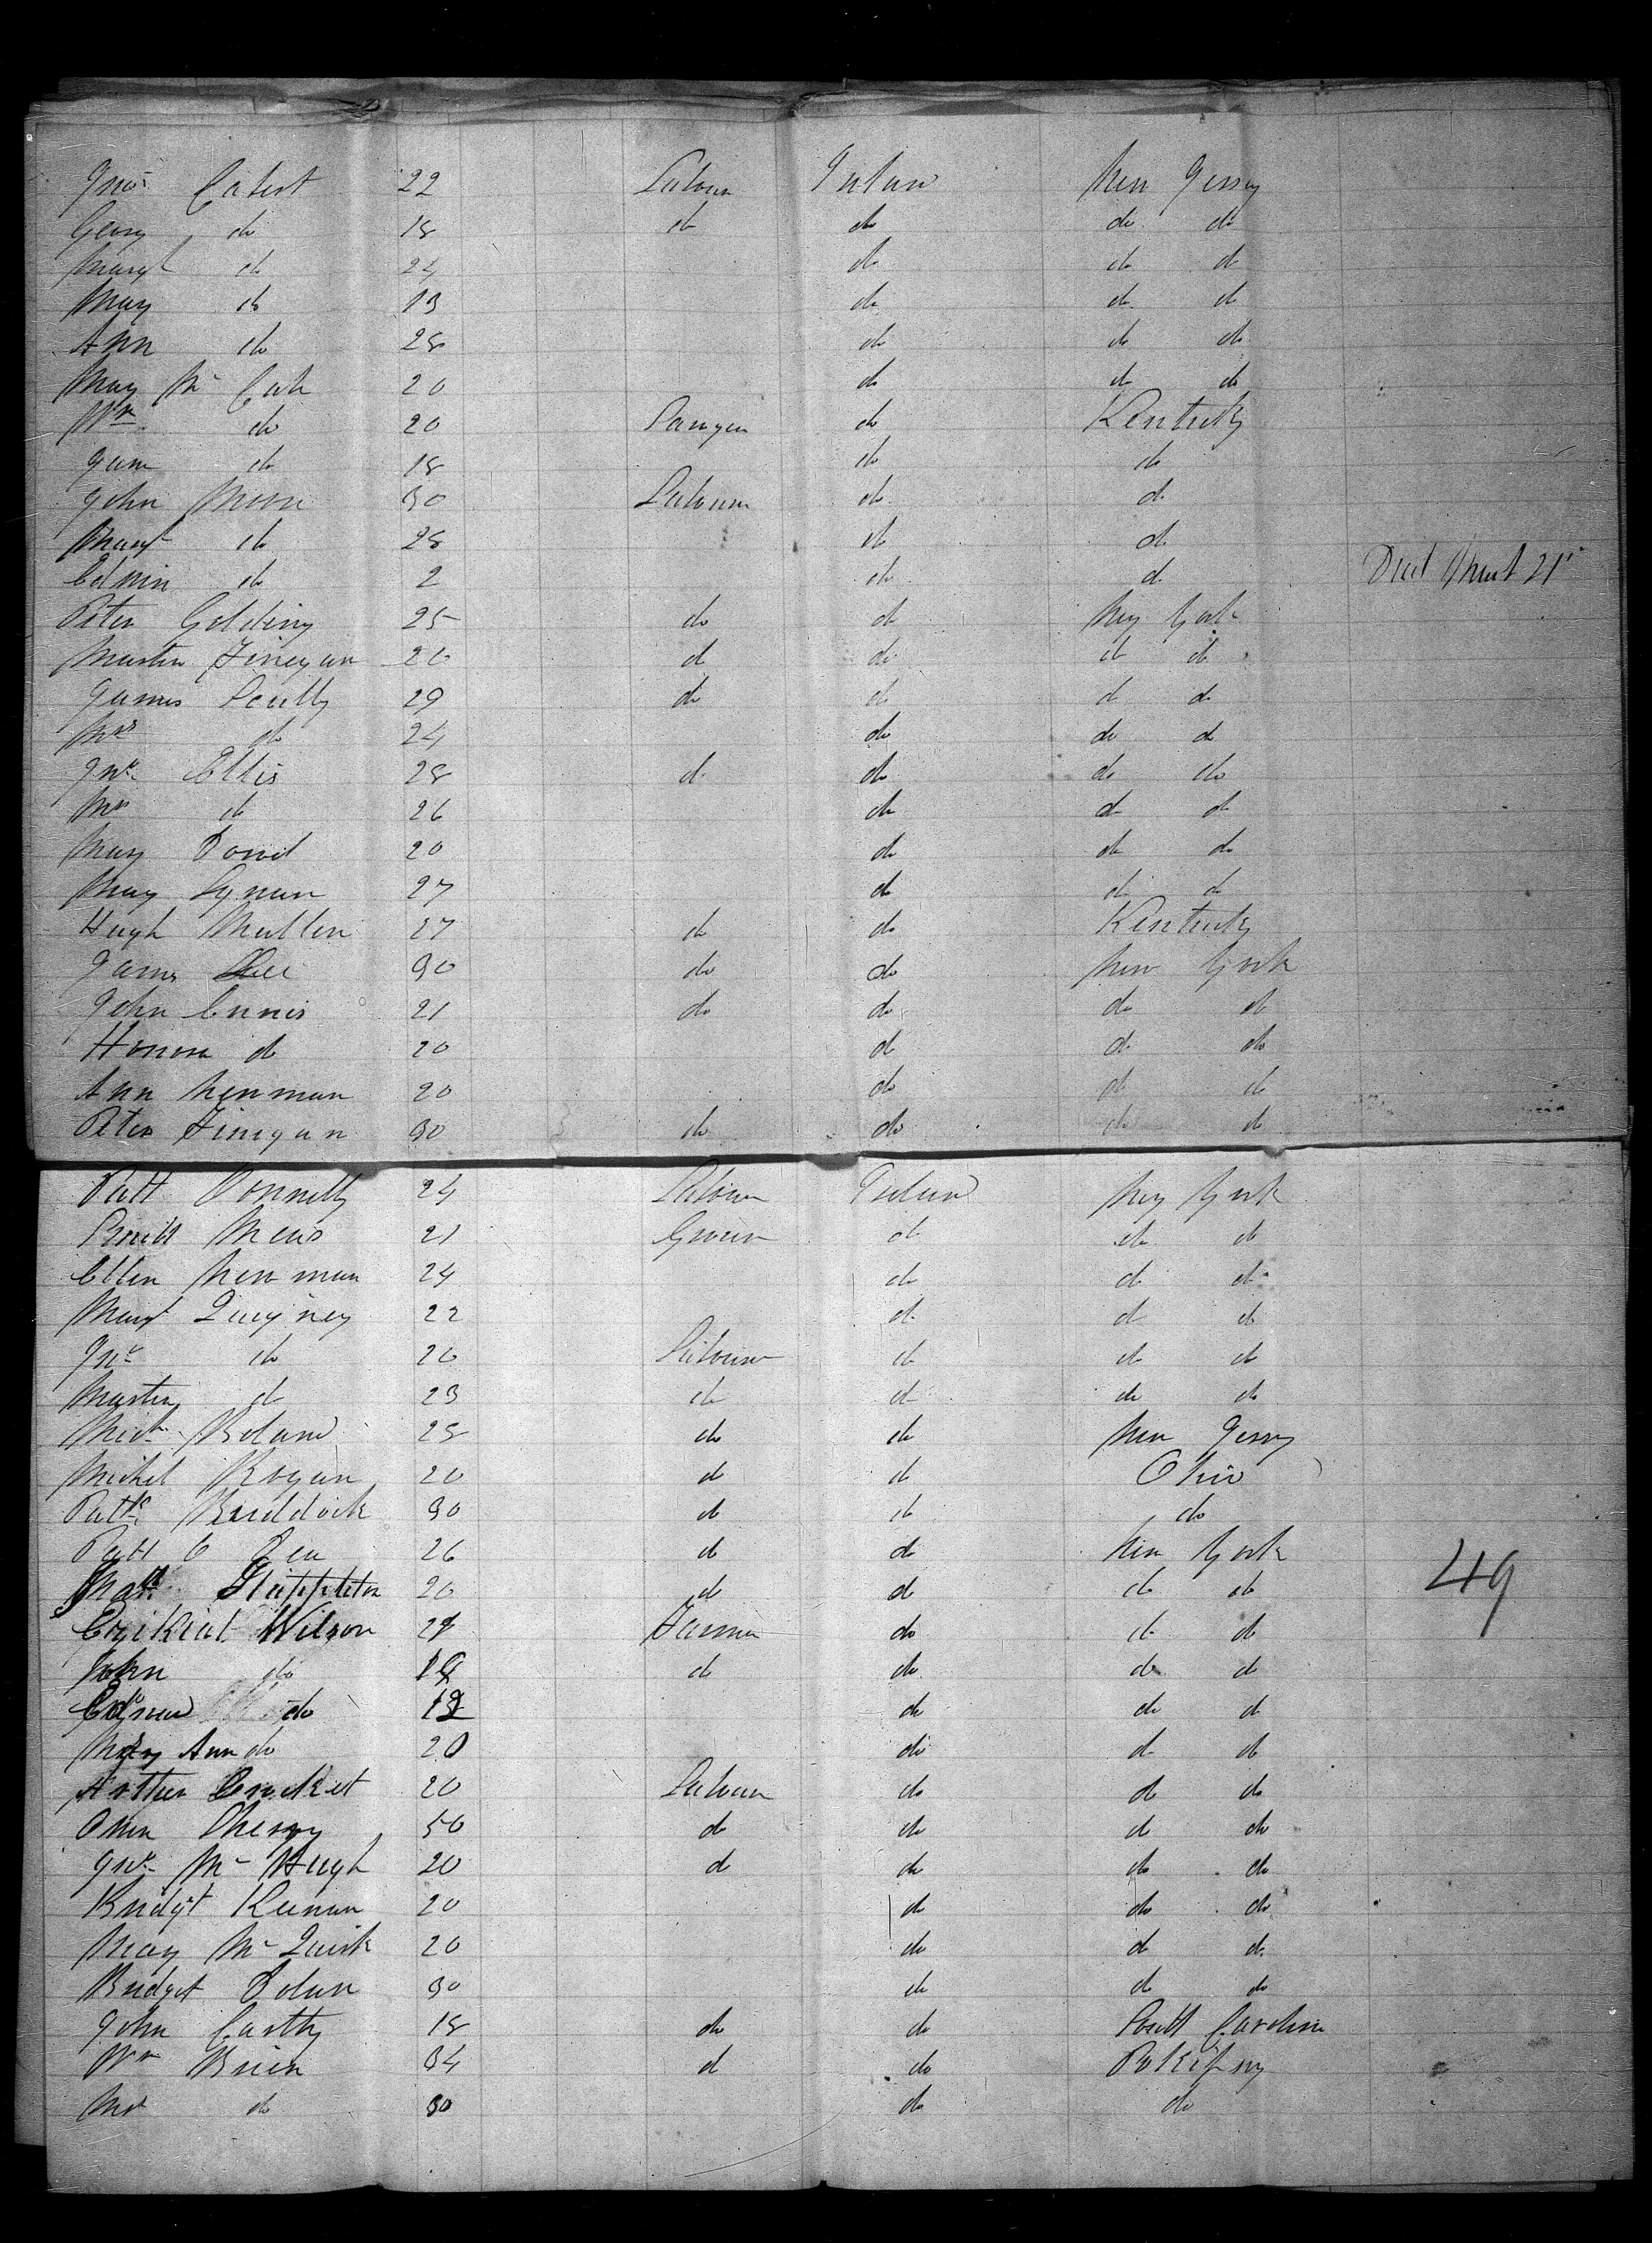 Jno. 22 Labour Ireland New Jersey
Georg do 18 do do do do
Margt do 24 do do do
Mary do 13 do do do
Ann do 28 do do do
Mary Mc Cabe 20 do do do
Wm do 20 do Kentucky
Jane do 18 do do
John Moore 30 Labourer do do
Margt do 28 do do
Edwin do 2 do do Died 21st
Peter Golding 25 do do New York
Martin Finegan 26 do do do do
James Scully 29 do do do do
Mrs do 24 do do do
Jno. Ellis 28 do do do do
Mrs do 26 do do do
Mary 20 do do do
Mary Lynan 27 do do do
Hugh Mullen 27 do do Kentucky
James 30 do do New York
John Ennis 21 do do do do
Honora do 20 do do do
Ann Newman 20 do do do
Peter Finegan 30 do do do do
Patt Donnelly 24 Labour Ireland New York
21 do do do
Ellen Newman 24 do do do
Margt Quigney 22 do do do
Jno. do 26 Labourer do do do
Martin do 23 do do do do
Micl. Boland 28 do do New Jersey
Michel Hogan 20 do do Ohio
Pattk Braddock 30 do do do
Patt O Dea 26 do do New York
Matt. Stappleton 20 do do do do
Ezikial Wilson Farmer do do do
John do do do do do
do do do do
Mary Ann do 20 do do do
Arthur 20 Labour do do do
Owen 50 do do do do
Jno. Mc Hugh 20 do do do do
Bridgt Keenan 20 do do do
Mary Mc Quirk 20 do do do
Bridget Dolan 30 do do do
John Carthy 18 do do South Carolina
Wm Brien 34 do do
Mrs do 30 do do
49